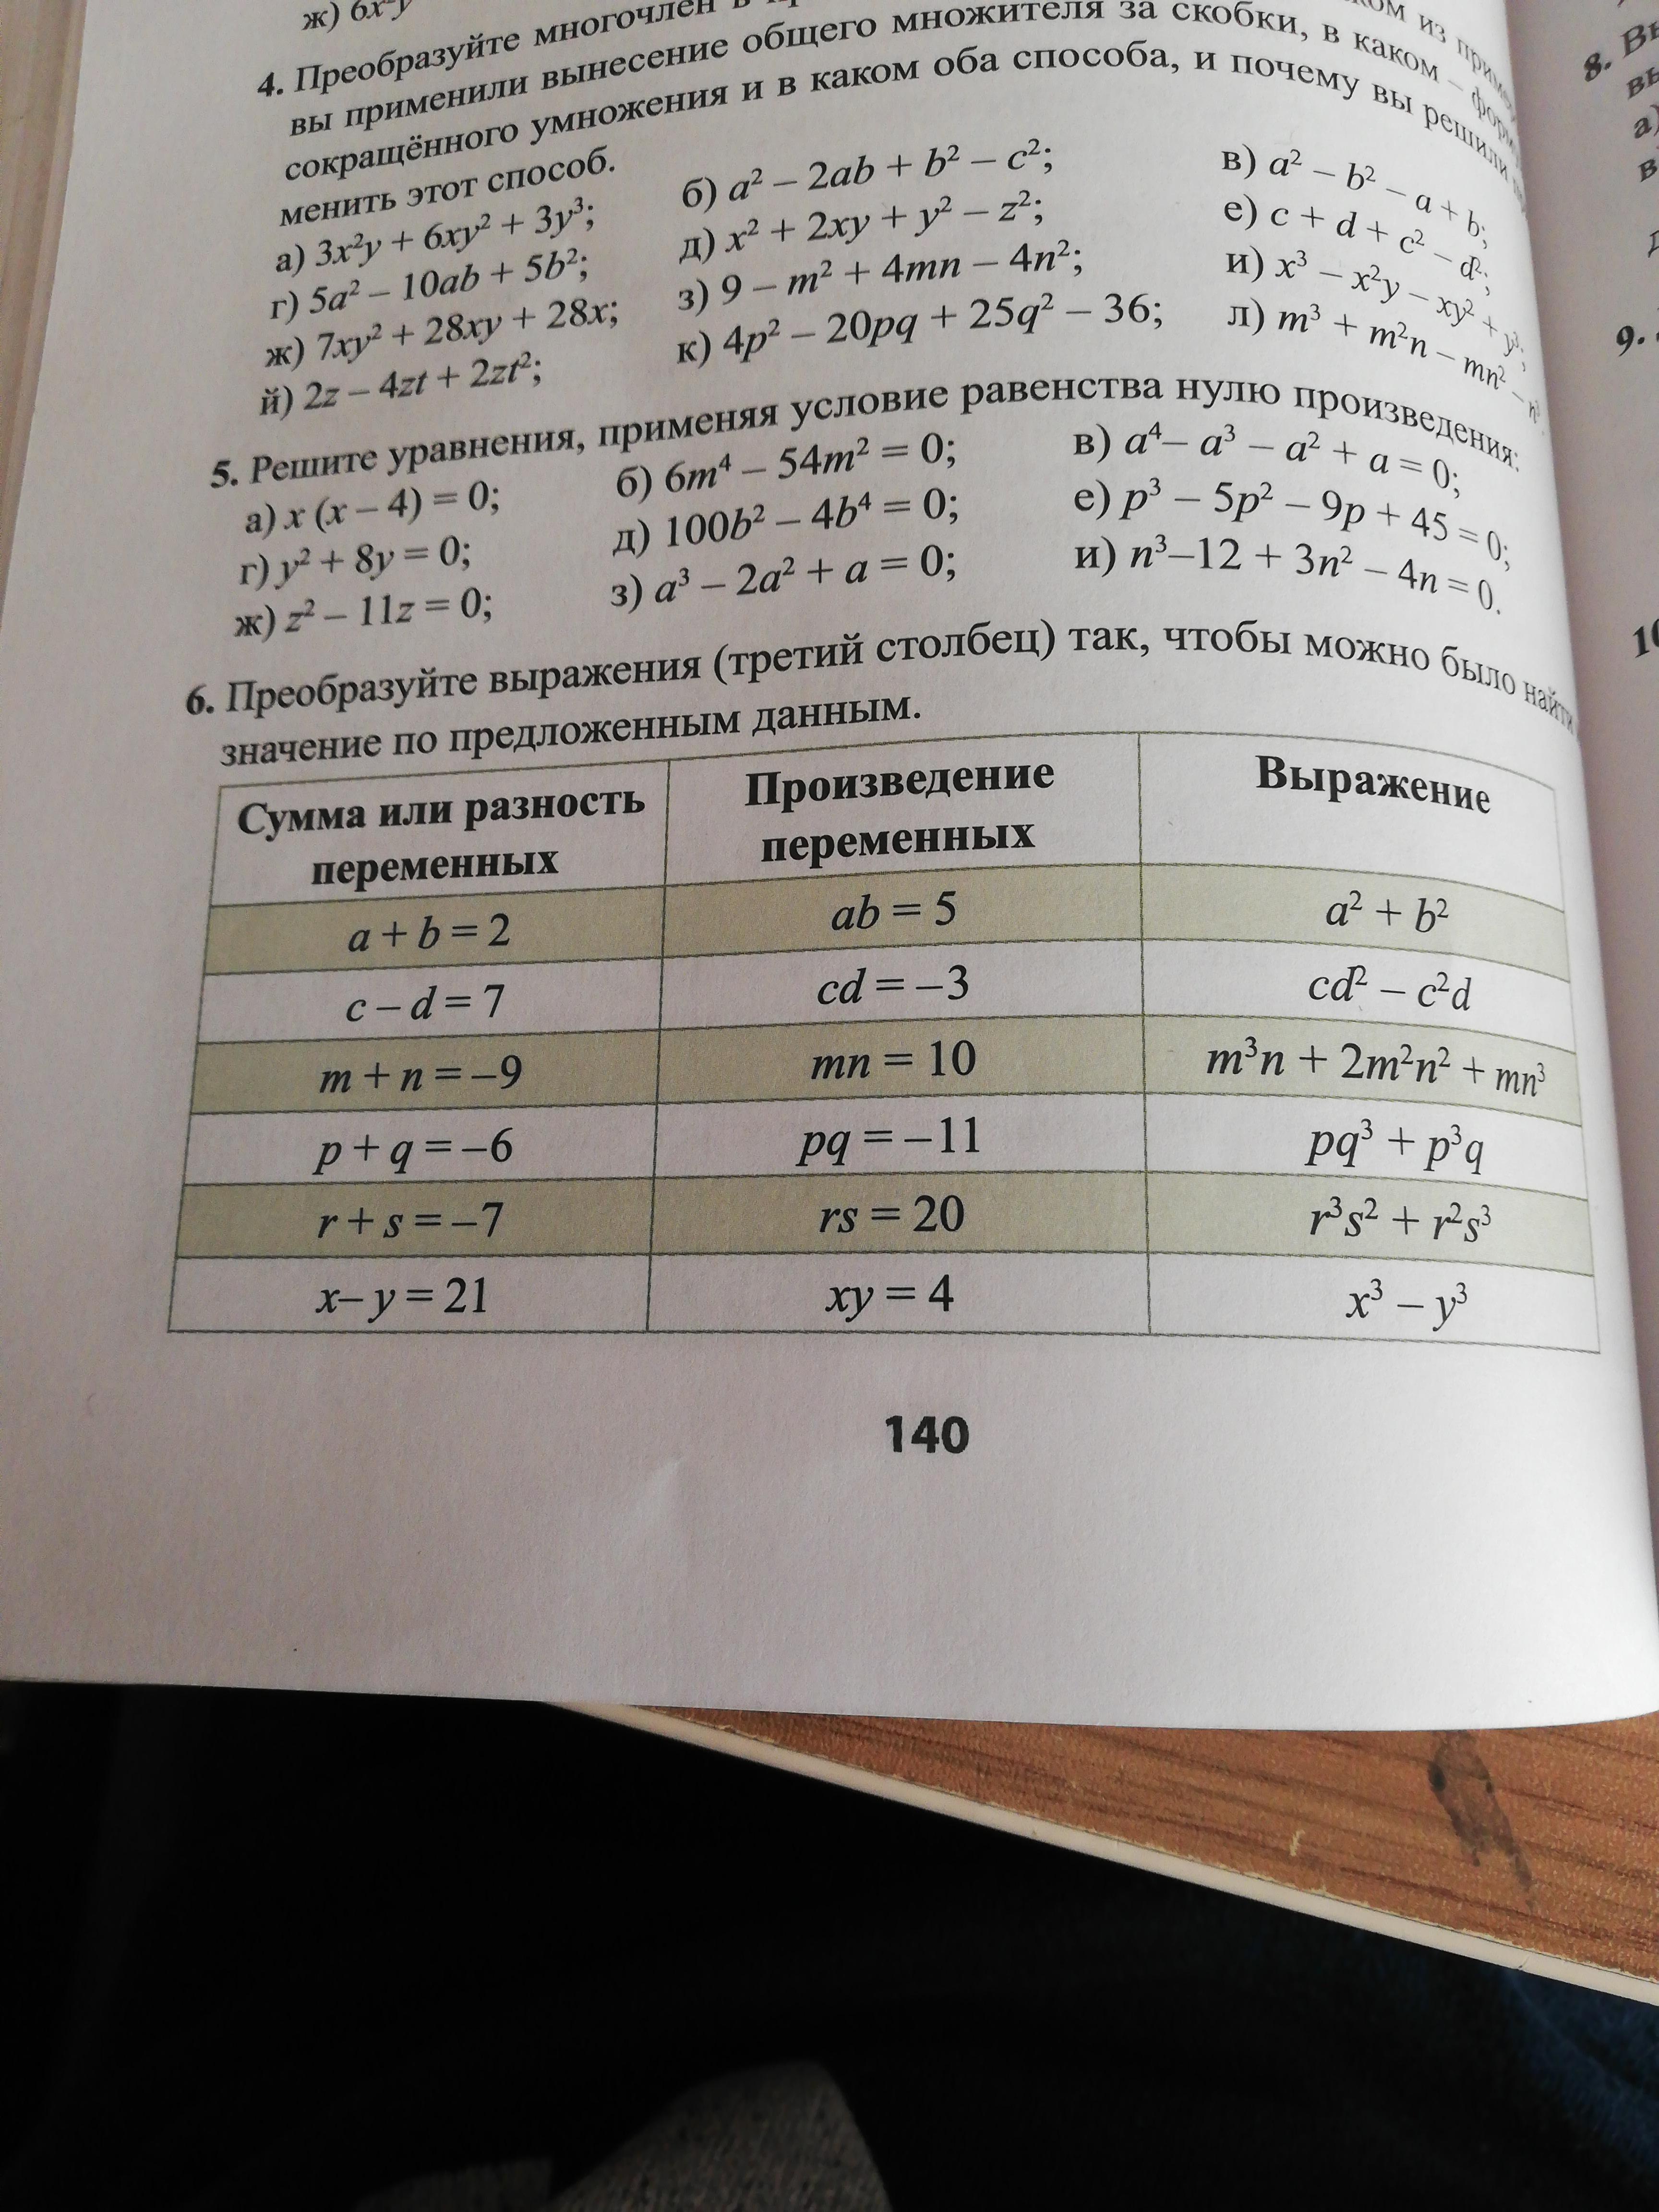 ж) 6x²y
4. Преобразуйте многочлен в
ком из
вы применили вынесение общего множителя за скобки, в каком –
сокращённого умножения и в каком оба способа, и почему вы решили
менить этот способ.
а) 3x²y + 6xy² + 3y³; б) a² – 2ab + b² – c²; в) a² – b² – a + b;
г) 5a² – 10ab + 5b²; д) x² + 2xy + y² – z²; е) c + d + c² – d²;
ж) 7xy² + 28xy + 28x; з) 9 – m² + 4mn – 4n²; и) x³ – x²y – xy² + y³;
й) 2z – 4zt + 2zt²; к) 4p² – 20pq + 25q² – 36; л) m³ + m²n – mn² – n³
5. Решите уравнения, применяя условие равенства нулю произведения:
а) x (x – 4) = 0; б) 6m⁴ – 54m² = 0; в) a⁴– a³ – a² + a = 0;
г) y² + 8y = 0; д) 100b² – 4b⁴ = 0; е) p³ – 5p² – 9p + 45 = 0;
ж) z² – 11z = 0; з) a³ – 2a² + a = 0; и) n³–12 + 3n² – 4n = 0.
6. Преобразуйте выражения (третий столбец) так, чтобы можно было найти
значение по предложенным данным.
Сумма или разность переменных Произведение переменных Выражение
a + b = 2 ab = 5 a² + b²
c – d = 7 cd = –3 cd² – c²d
m + n = –9 mn = 10 m³n + 2m²n² + mn³
p + q = –6 pq = –11 pq³ + p³q
r + s = –7 rs = 20 r³s² + r²s³
x– y = 21 xy = 4 x³ – y³
140
8.
а)
9.